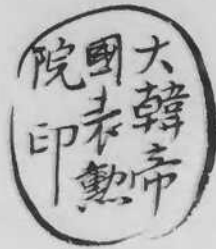 大韓帝
國表勲
院印